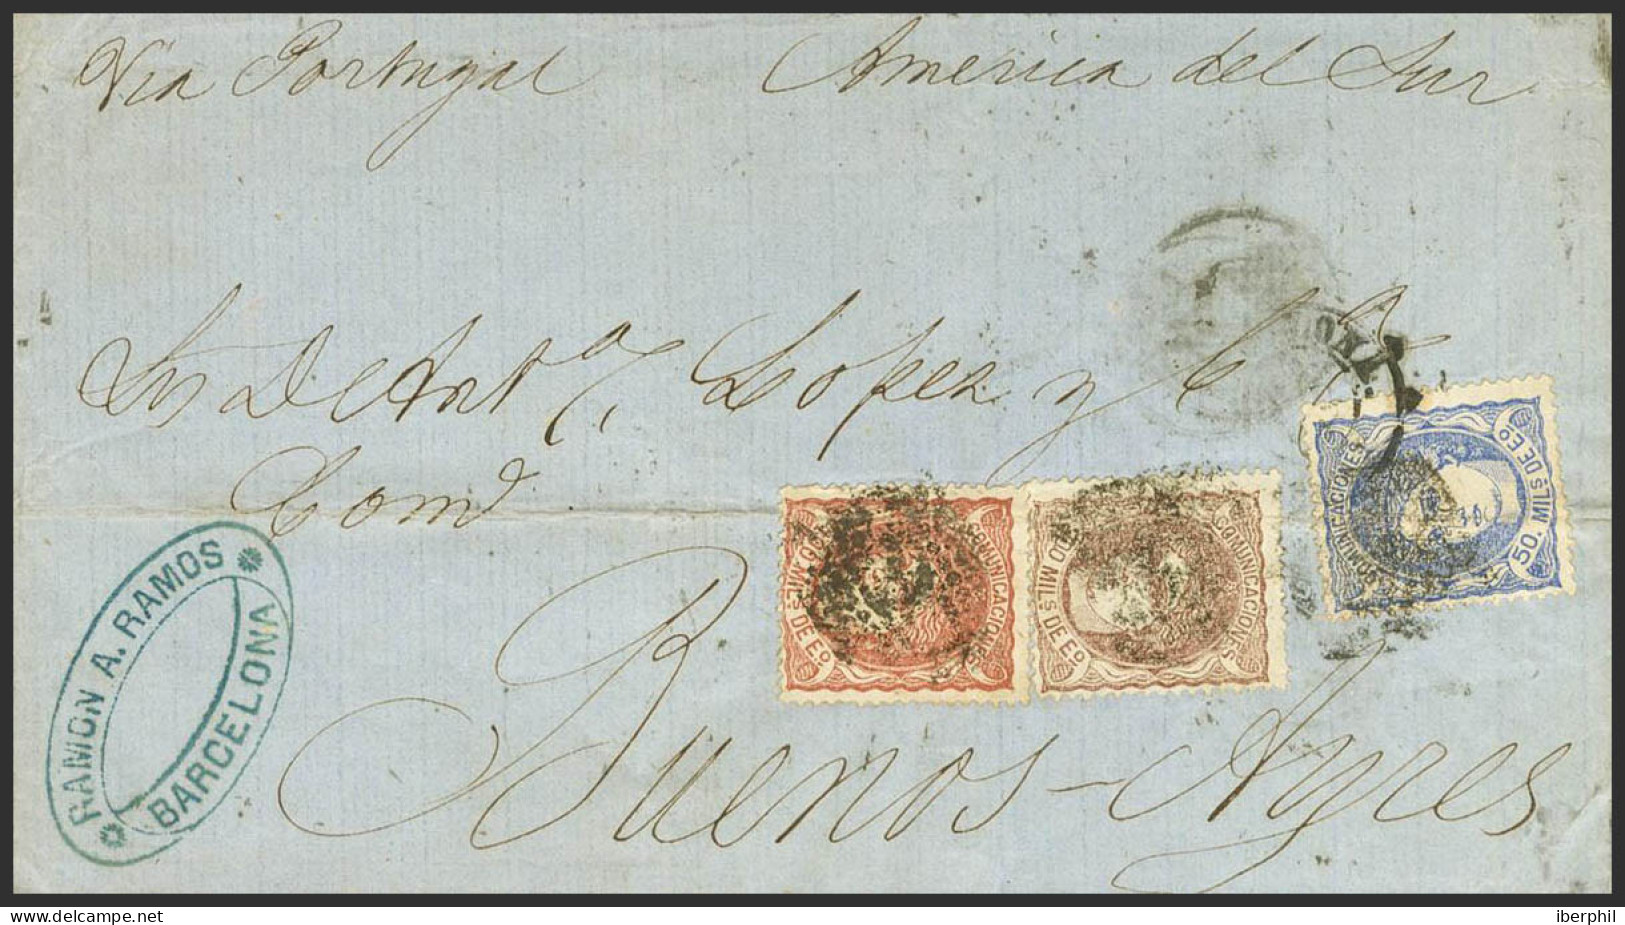 Via Portugal America del Sur
Lopez y Cª
Comd.
Buenos-Ayres
RAMON A. RAMOS
BARCELONA
COMUNICACIONES
MILS DE Eº
COMUNICACIONES
MILS DE Eº
COMUNICACIONES
50. MILS DE Eº
www.delcampe.net
iberphil